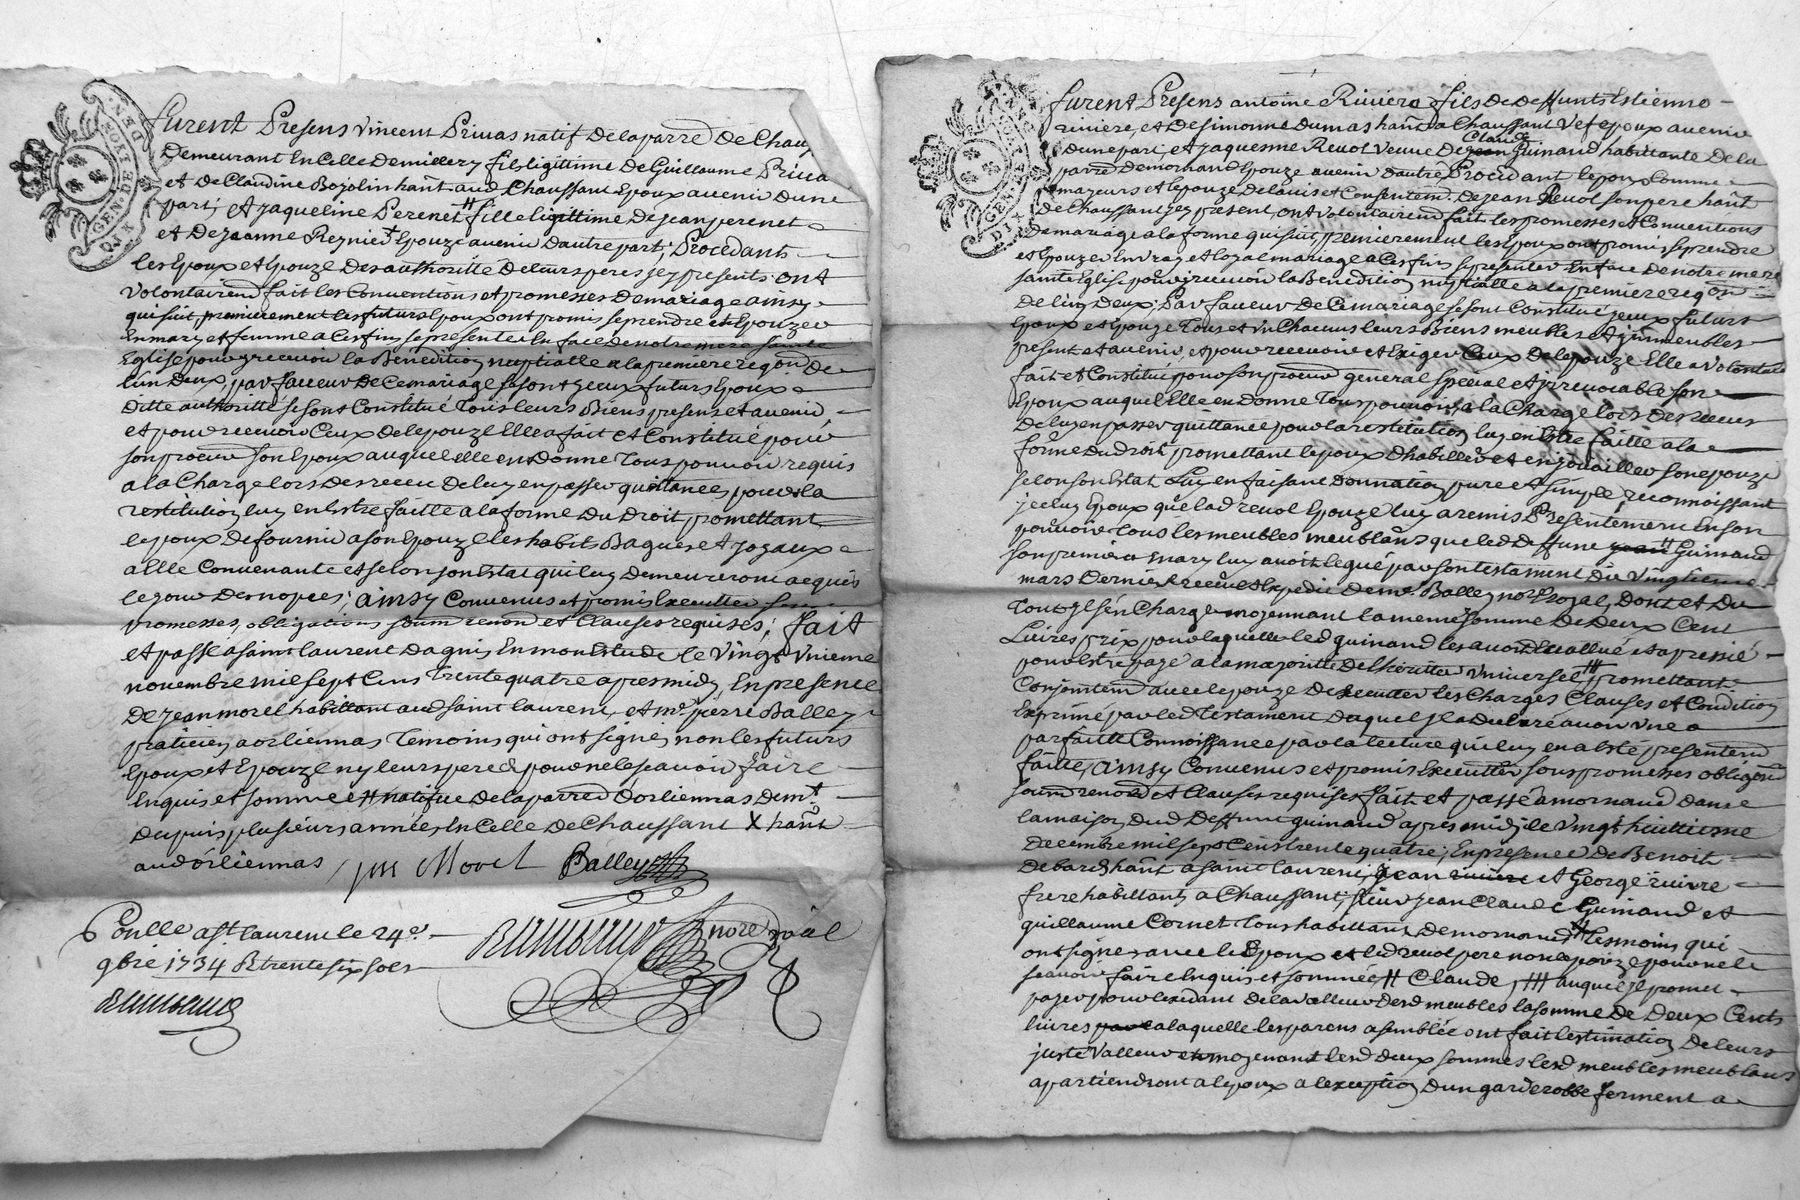 GEN. DE LYON
QUR
furent Presens vincent Privas natif De la parre De Chau
Demeurant En Celle De millery fils ligittime De Guillaume Priva
et de Claudine Bojolin hant aud Chaussant Epoux avenir Dune
part; et Jaqueline Perenet # fille ligittime De jean perenet
et De jeanne Reynied Epouze avenir Dautre part; Procedants
les Epoux et Epouze Des authoritté De leurs peres jcy presents ont
volontairemt fait les Conventions et promesses De mariage ainsy
qui suit, premierement les futurs Epoux ont promis se prendre et Epouzer
En mary et femme a Ces fins se presenter En face De notre mere sainte
Eglise pour y recevoir la Benediction nuptialle a la premiere reqon De
lun Deux, par faveur De Ce mariage se sont yceux futurs Epoux
Ditte authoritté se sont Constitué Tous leurs Biens presens et avenir,
et pour recevoir Ceux De lepouze Elle a fait et Constitué pour
son procur son Epoux auquel elle en Donne Tous pouvoir requis
a la Charge lors Des receu De luy en passer quittances pour la
restitution luy en Estre faitte a la forme Du Droit, promettant
lepoux De fournir a son Epouze les habits Bagues et joyaux
a Elle Convenante et selon son Estat qui luy Demeureront acquis
le jour Des nopces; ainsy Convenus et promis Executter sous
promesses, obligations soum renon et Clauses requises; fait
et passé a saint laurent Dagny En mon Estude le Vingt Unieme
novembre mil sept Cens Trente quatre apres midy, En presence
De jean morel habittant aud saint laurent, et me pierre Balley
praticien a orliennas Temoins qui ont signé, non les futurs
Epoux et Epouze ny leurs peres pour ne le scavoir faire
Enquis et sommé # natifve De la parre Dorliennas Demt
Depuis plusieurs années En Celle De Chaussant X hant
aud orliennas
jm Morel Balley
nore royal
Conlle a st laurent le 24e
9bre 1734 R trente six sols
GEN. DE LYON
DIX
furent Presens antoine Riviere fils De Deffunts Estienne
riviere, et De simonne Dumas hant a Chaussant Vef epoux avenir
Dune part; et Jaquesme Revol veuve De jean Claude Guinand habittante De la
parre De mornand Epouze avenir Dautre Procedant lepoux Comme
majeurs et lepouze De lavis et Consentemt De jean Revol son pere hant
De Chaussant jcy present, ont volontairemt fait les promesses et Conventions
De mariage a la forme qui suit, premierement les Epoux ont promis se prendre
et Epouzer En vray et loyal mariage a Ces fins se presenter En face De notre mere
sainte Eglise pour y recevoir la Benediction nuptialle a la premiere reqon
De lun Deux; Par faveur De Ce mariage se sont Constitué yceux futurs
Epoux et Epouze Tous et Un Chacuns leurs Biens meubles et jmmeubles
present et avenir, et pour recevoir et Exiger Ceux De lepouze Elle a volontair
fait et Constitué pour son procur general special et jrrevocable son
Epoux auquel Elle en Donne Tous pouvoirs a la Charge lors Des receus
De luy en passer quittance pour la restitution luy en Estre faitte a la
forme Du Droit, promettant lepoux Dhabiller et enjoüailler son epouze
selon son Estat luy en faisant Donnation pure et simple, reconnoissant
jceluy Epoux que lad revol Epouze luy a remis Presentement En son
pouvoir Tous les meubles meublans que led Deffunt jean # Guinand
son premier mary luy avoit legué par son testament Du vingtieme
mars Dernier receu et Expedié De me Balley nore Royal, Dont et Du
Tout jl sen Charge moyennant la meme somme De Deux Cent
Livres prix pour laquelle led guinand les avoit Evallué et aprecié
pour Estre payé a la majoritté De lheritier Universel ### promettant
Conjointemt avec lepouze De Executter les Charges Clauses et Condition
Exprimé par led Testament Duquel jl a Declaré avoir Une
parfaitte Connoissance par la lecture qui luy en a Esté presentemt
faitte, ainsy Convenus et promis Executter sous promesses obligons
soum renon et Clauses requises fait et passé a mornand Dans
la maison Dud Deffunt guinand apres midy le Vingt huittieme
Decembre mil sept Cens trente quatre; En presence De Benoit
Debard hant a saint laurent, jean riviere et George riviere
frere habittant a Chaussant, sieur jean Claude Guinand et
guillaume Cornet Tous habittant De mornand Tesmoins qui
ont signé avec led Epoux et led revol pere non lepouze pour ne le
scavoir faire Enquis et sommée # Claude, ### auquel jl promet
payer pour lexedant De la valleur Desd meubles la somme De Deux Cents
livres par a laquelle les parens asemblée ont fait lestimation De leurs
juste Valleur et moyenant lesd deux sommes lesd meubles meublans
apartiendront a lepoux a lexception Dun garderobbe ferment a